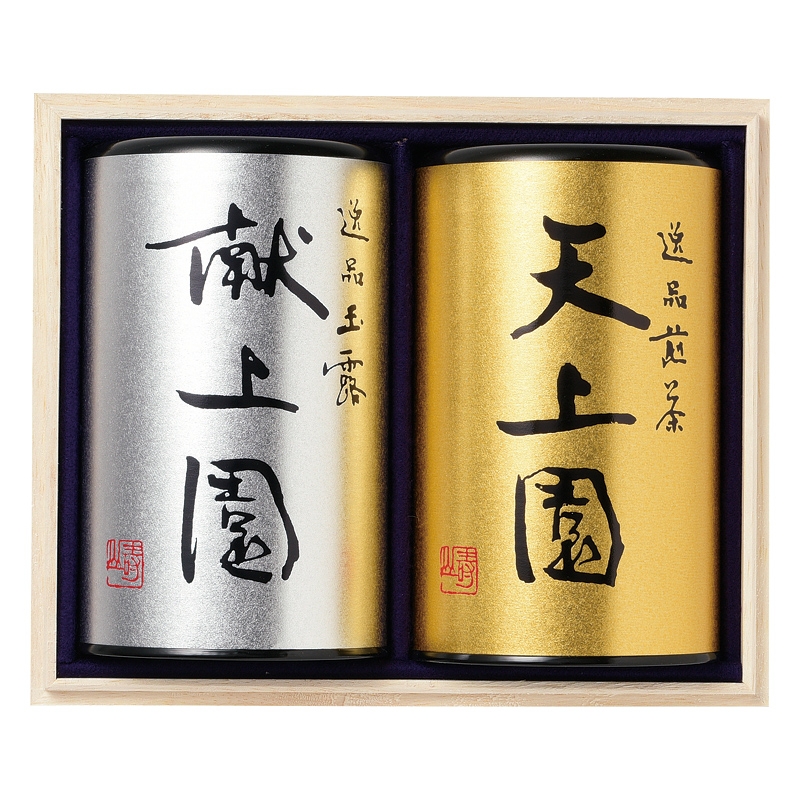 献上園
逸品玉露
天上園
逸品煎茶